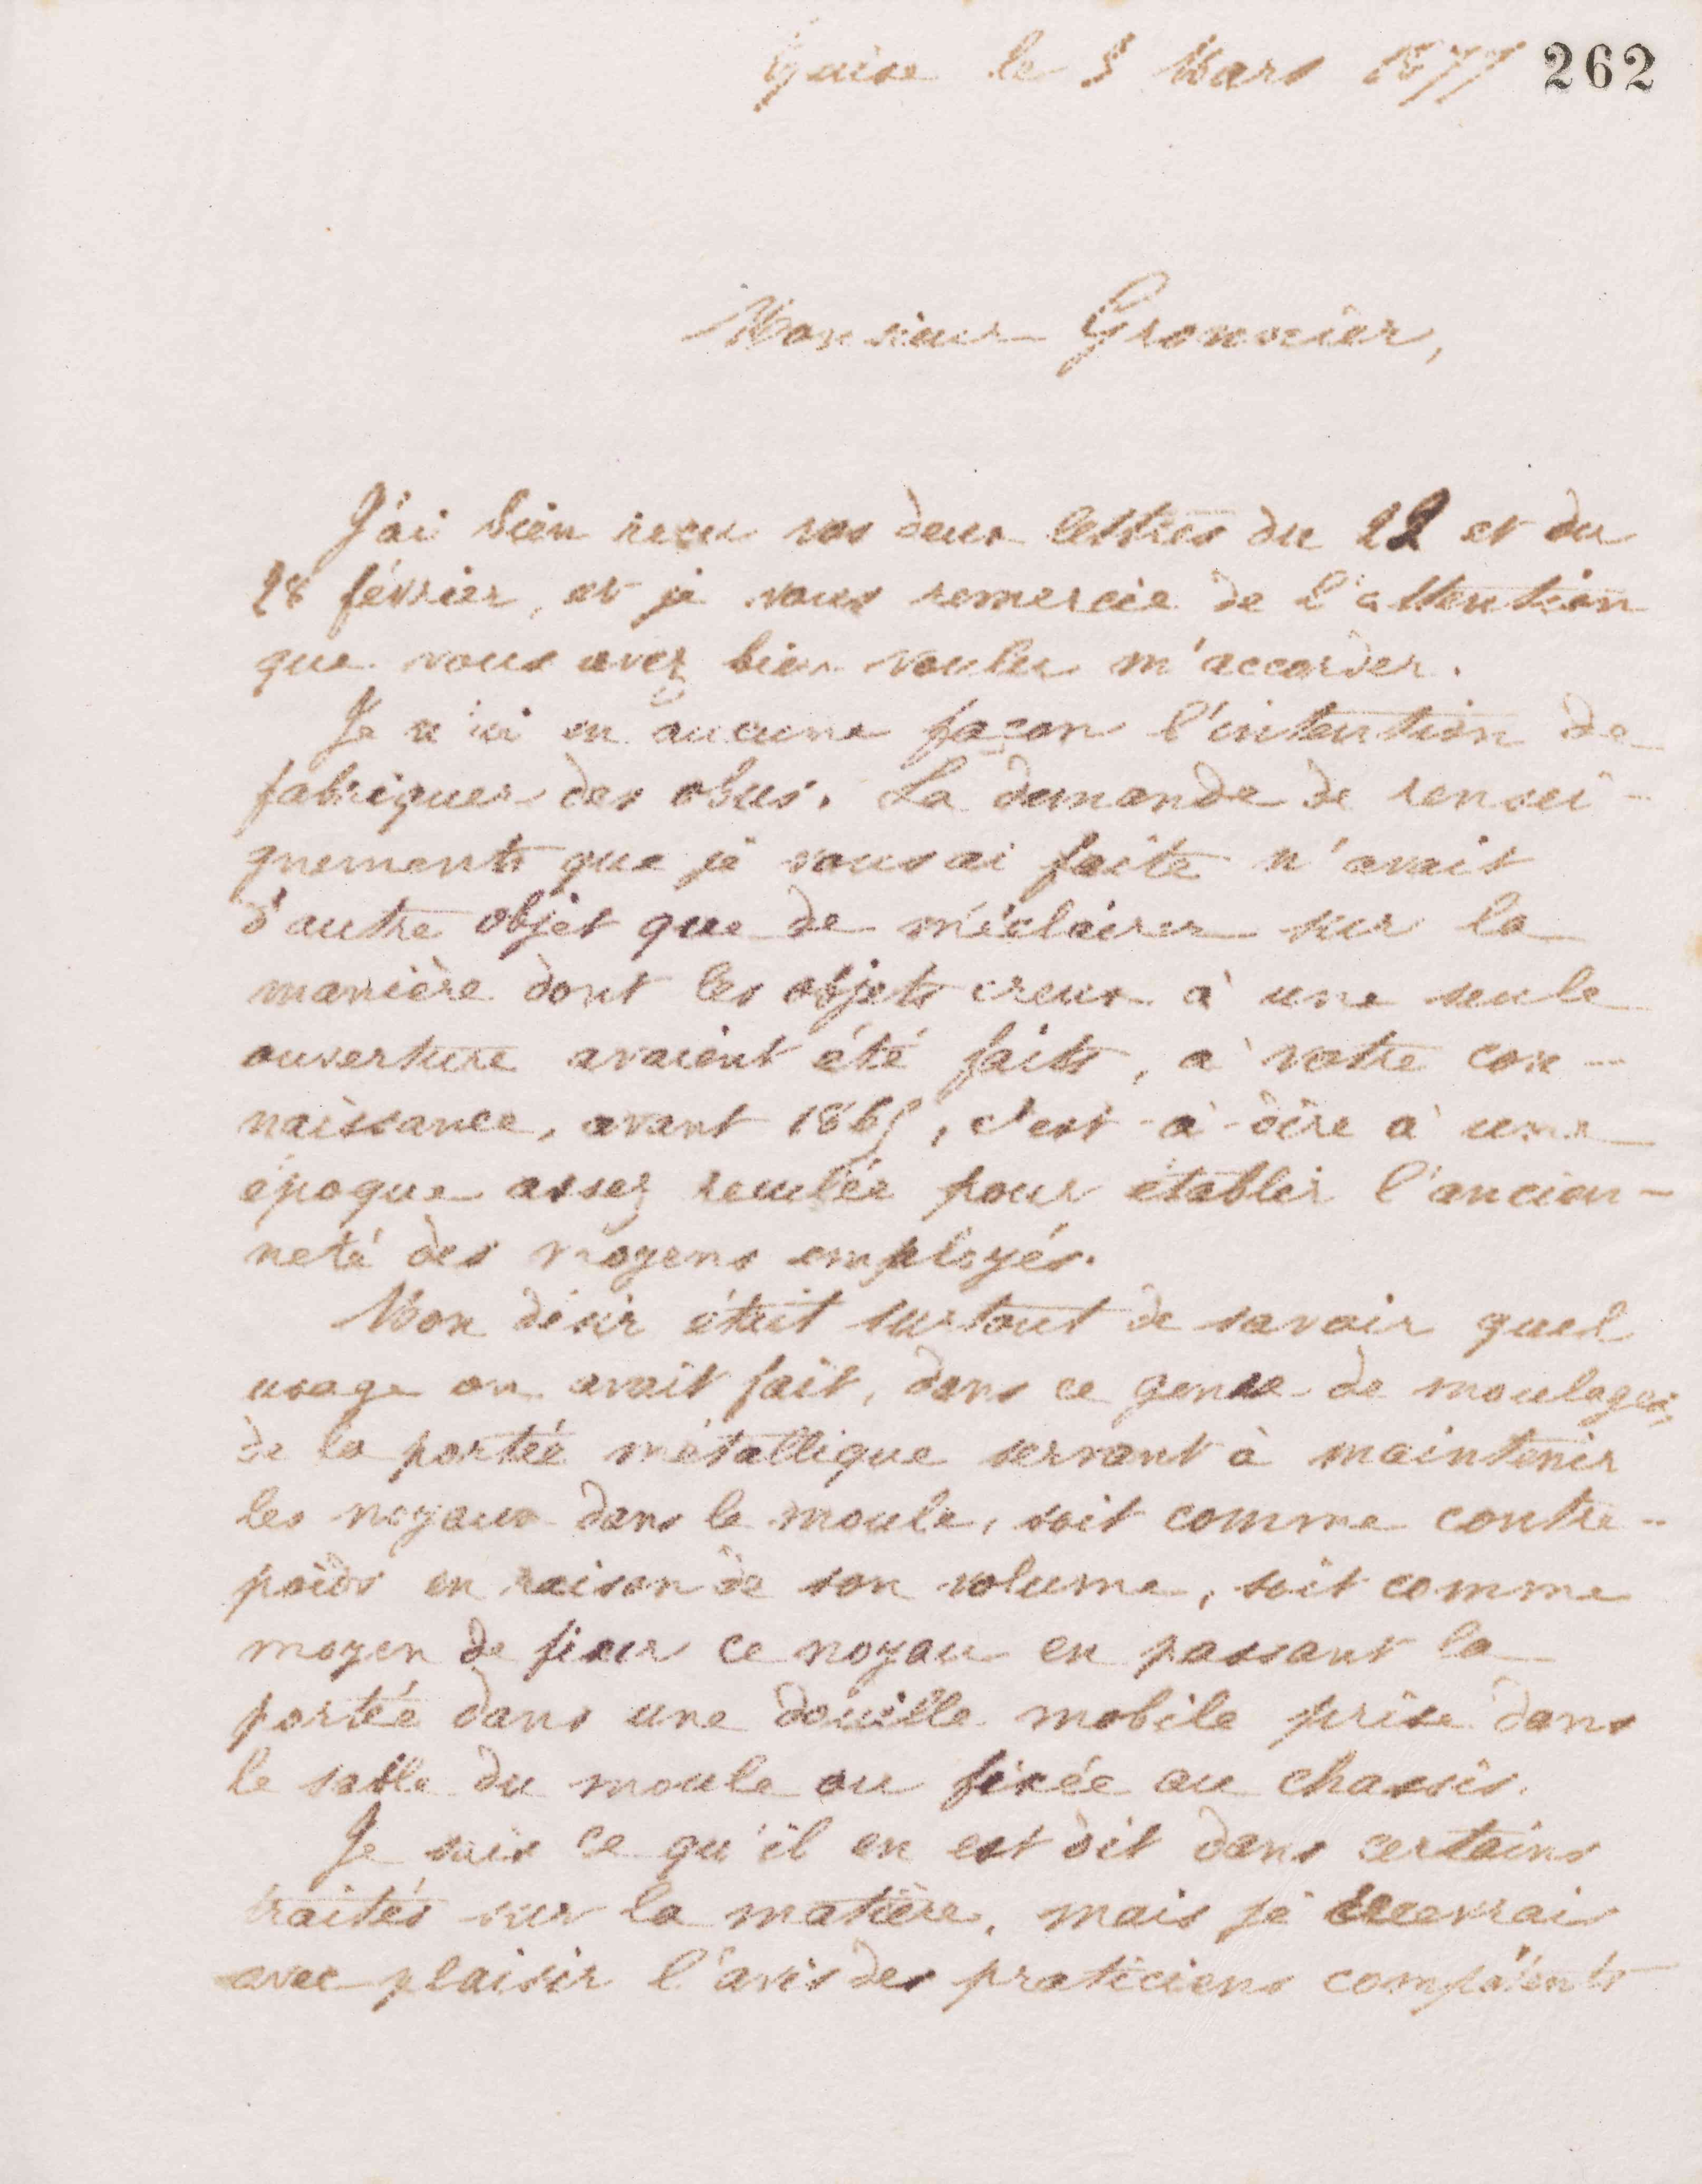 Guise le 3 Mars 1877 262
Monsieur Gronnier,
J'ai bien reçu vos deux lettres du 22 et du
28 février, et je vous remercie de l'attention
que vous avez bien voulu m'accorder.
Je n'ai en aucune façon l'intention de
fabriquer des obus. La demande de rensei-
gnements que je vous ai faite n'avait
d'autre objet que de m'éclairer sur la
manière dont les objets creux à une seule
ouverture avaient été faits, à votre con-
naissance, avant 1865, c'est-à-dire à une
époque assez reculée pour établir l'ancien-
neté des moyens employés.
Mon désir était surtout de savoir quel
usage on avait fait, dans ce genre de moulages,
de la portée métallique servant à maintenir
les noyaux dans le moule, soit comme contre-
poids en raison de son volume, soit comme
moyen de fixer ce noyau en passant la
portée dans une douille mobile prise dans
le sable du moule ou fixée au chassis.
Je sais ce qu'il en est dit dans certains
traités sur la matière, mais je recevrai
avec plaisir l'avis des praticiens compétents